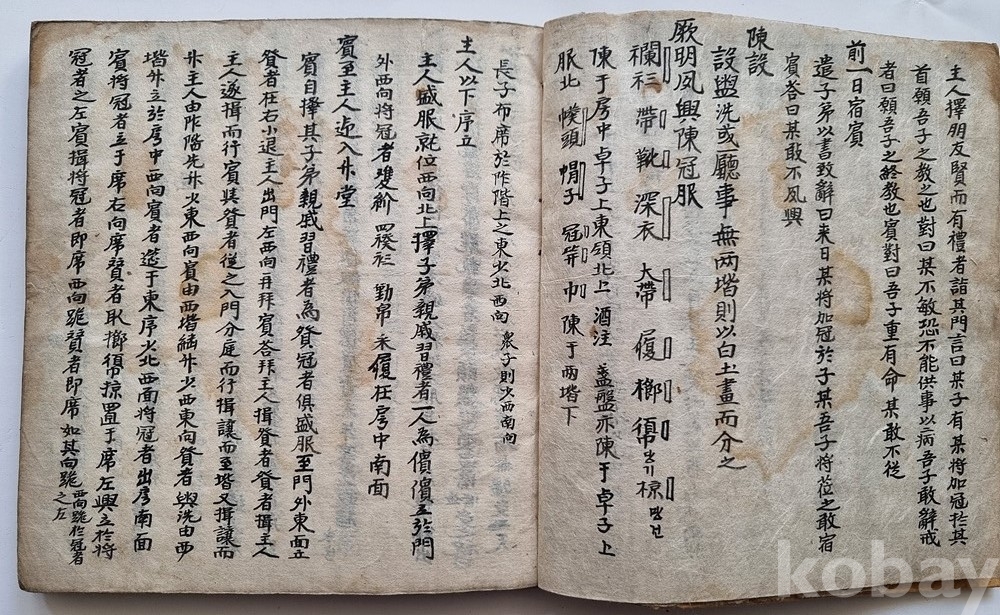 主人擇朋友賢而有禮者詣其門言曰某子有某將加冠於其
首願吾子之教之也對曰某不敏恐不能供事以病吾子敢辭戒
者曰願吾子之終教也賓對曰吾子重有命某敢不從
前一日宿賓
遣子弟以書致辭曰来日某將加冠於子某吾子將莅之敢宿
賓答曰某敢不夙興
陳設
設盥洗或廳事無兩堦則以白土畫而分之
厥明夙興陳冠服
襴衫 帶 靴 深衣 大帶 履 櫛 䈂 掠 망건
陳于房中卓子上東領北上 酒注 盞盤亦陳于卓子上
服北 幞頭 帽子 冠笄 巾 陳于兩堦下
長子布席於阼階上之東少北西向 衆子則少西南向
主人以下序立
主人盛服就位西向北上擇子弟親戚習禮者一人為儐儐立於門
外西向將冠者雙紒 四䙆衫 勒帛 采屨在房中南面
賓至主人迎入升堂
賓自擇其子弟親戚習禮者為賛冠者俱盛服至門外東面立
賛者在右小退主人出門左西向再拜賓答拜主人揖賛者賛者揖主人
主人遂揖而行賓與賛者從之入門分庭而行揖讓而至堦又揖讓而
升主人由阼階先升少東西向賓由西堦繼升少西東向賛者與洗由西
堦升立於房中西向賓者筵于東序少北西面將冠者出房南面
賓將冠者立于席右向席賛者取櫛䈂掠置于席左興立於將
冠者之左賓揖將冠者即席西向跪賛者即席如其向跪 西向跪於冠者之左
kobay